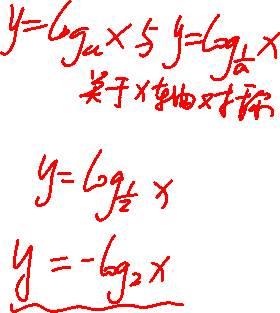 y=logₐx与y=log_{1/a}x
关于x轴对称
y=log_{1/2}x
y=-log₂x